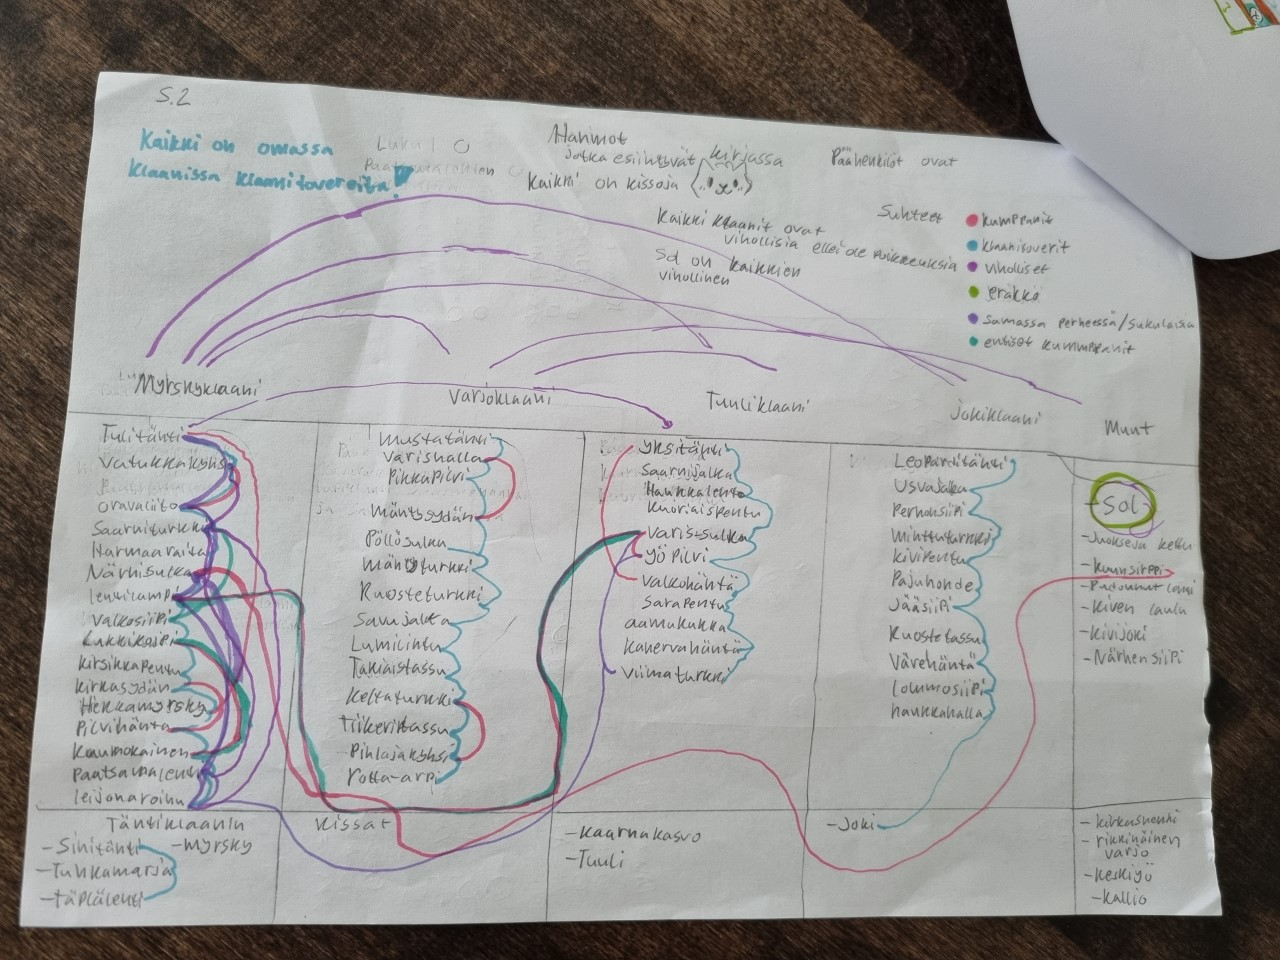 S.2
Kaikki on omassa
klaanissa klaanitovereita!
Luku 1
Hahmot
jotka esiintyvät kirjassa
Kaikki on kissoja
Päähenkilöt ovat
Kaikki klaanit ovat
vihollisia ellei ole poikkeuksia
Sol on kaikkien
vihollinen
Suhteet
kumppanit
klaanitoverit
viholliset
erakko
samassa perheessä/sukulaisia
entiset kummppanit
Myrskyklaani
Tulitähti
Vatukkakynsi
Oravaliito
Saarniturkki
Harmaaraita
Närhisulka
Lehtilampi
Valkosiipi
Lukkikoipi
Kirsikkapentu
Kirkasydän
Hiekkamyrsky
Pilvihäntä
Kaunokainen
Paatsamalehti
Leijonaroihu
Varjoklaani
Mustatähti
Varishalla
Pikkapilvi
Mäntysydän
Pöllösulka
Ruosteturkki
Savujalka
Lumilintu
Takiaistassu
Keltaturkki
Tiikeritassu
Pihlajakynsi
Rotta-arpi
Tuuliklaani
Yksitähti
Saarnijalka
Haukkalento
Kuoriaispentu
Varis-sulka
Yöpilvi
Valkohäntä
Sarapentu
aamukukka
Kanervahäntä
Viimaturkki
Jokiklaani
Leoparditähti
Usvajalka
Perhosiipi
Minttuturkki
Kivipentu
Pajuhonde
Jääsiipi
Kuostetassu
Värehäntä
Lommosiipi
haukkahalla
Muut
-Sol
-Juokseva kettu
-Kuunsirppi
-Pudonnut lehti
-Kiven laulu
-Kivijoki
-Närhen siipi
Tähtiklaanin
-Sinitähti
-Myrsky
-Tuhkamarja
-Täplälehti
Kissat
-Kaarnakasvo
-Tuuli
-Joki
-kirkashenki
-rikkinäinen
varjo
-Keskiyö
-Kallio